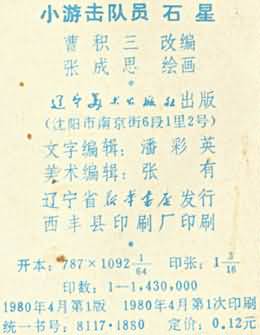 小游击队员 石星
曹积三 改编
张成思 绘画
辽宁美术出版社出版
(沈阳市南京街6段1里2号)
文字编辑: 潘彩英
美术编辑: 张 有
辽宁省新华书店发行
西丰县印刷厂印刷
开本: 787×1092 1/64 印张: 1 3/16
印数: 1—1,430,000
1980年4月第1版 1980年4月第1次印刷
统一书号: 8117·1880 定价: 0.12元